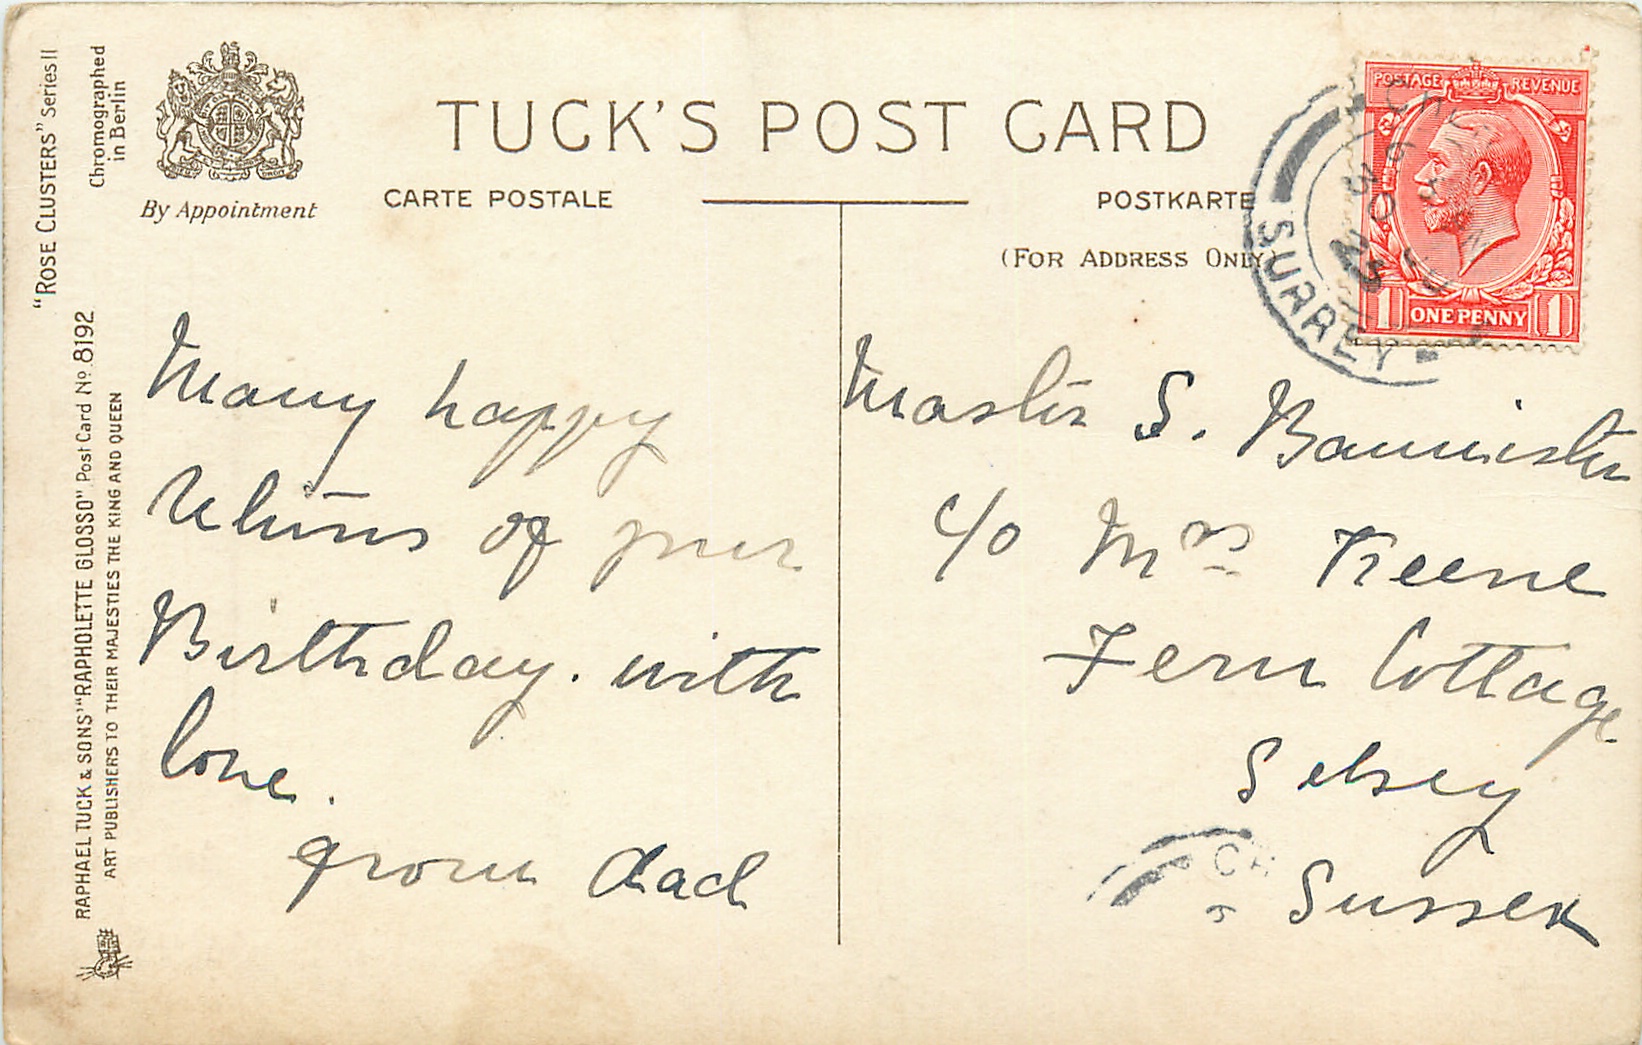 TUCK'S POST CARD
CARTE POSTALE
POSTKARTE
(FOR ADDRESS ONLY)
By Appointment
"ROSE CLUSTERS" Series II
Chromographed
in Berlin
RAPHAEL TUCK & SONS' "RAPHOLETTE GLOSSO" Post Card No. 8192
ART PUBLISHERS TO THEIR MAJESTIES THE KING AND QUEEN
POSTAGE REVENUE
1 ONE PENNY 1
SURREY
Many happy
returns of your
Birthday. with
love.
from dad
Master S. Bannister
c/o Mrs Keene
Fern Cottage
Selsey
Sussex